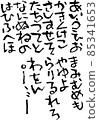 あいうえお
かきくけこ
さしすせそ
たちつてと
なにぬねの
はひふへほ
まみむめも
やゆよ
らりるれろ
わをん
85341653